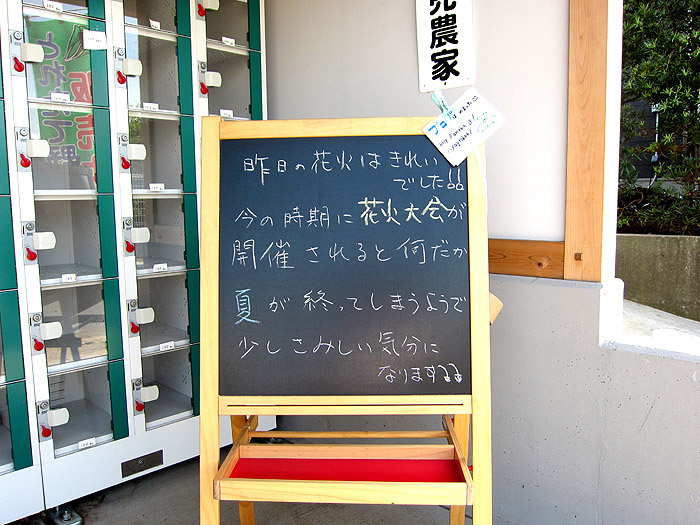 売農家
ブログ
昨日の花火はきれい
でした!!
今の時期に花火大会が
開催されると何だか
夏が終ってしまうようで
少しさみしい気分に
なります